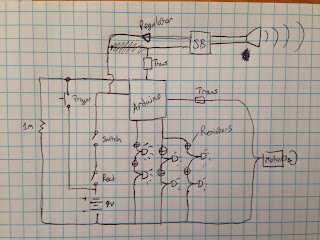 Regulator
SB
Trans
Trans
Arduino
Trigger
1M
Resistors
Switch
Motor
Rest
9V